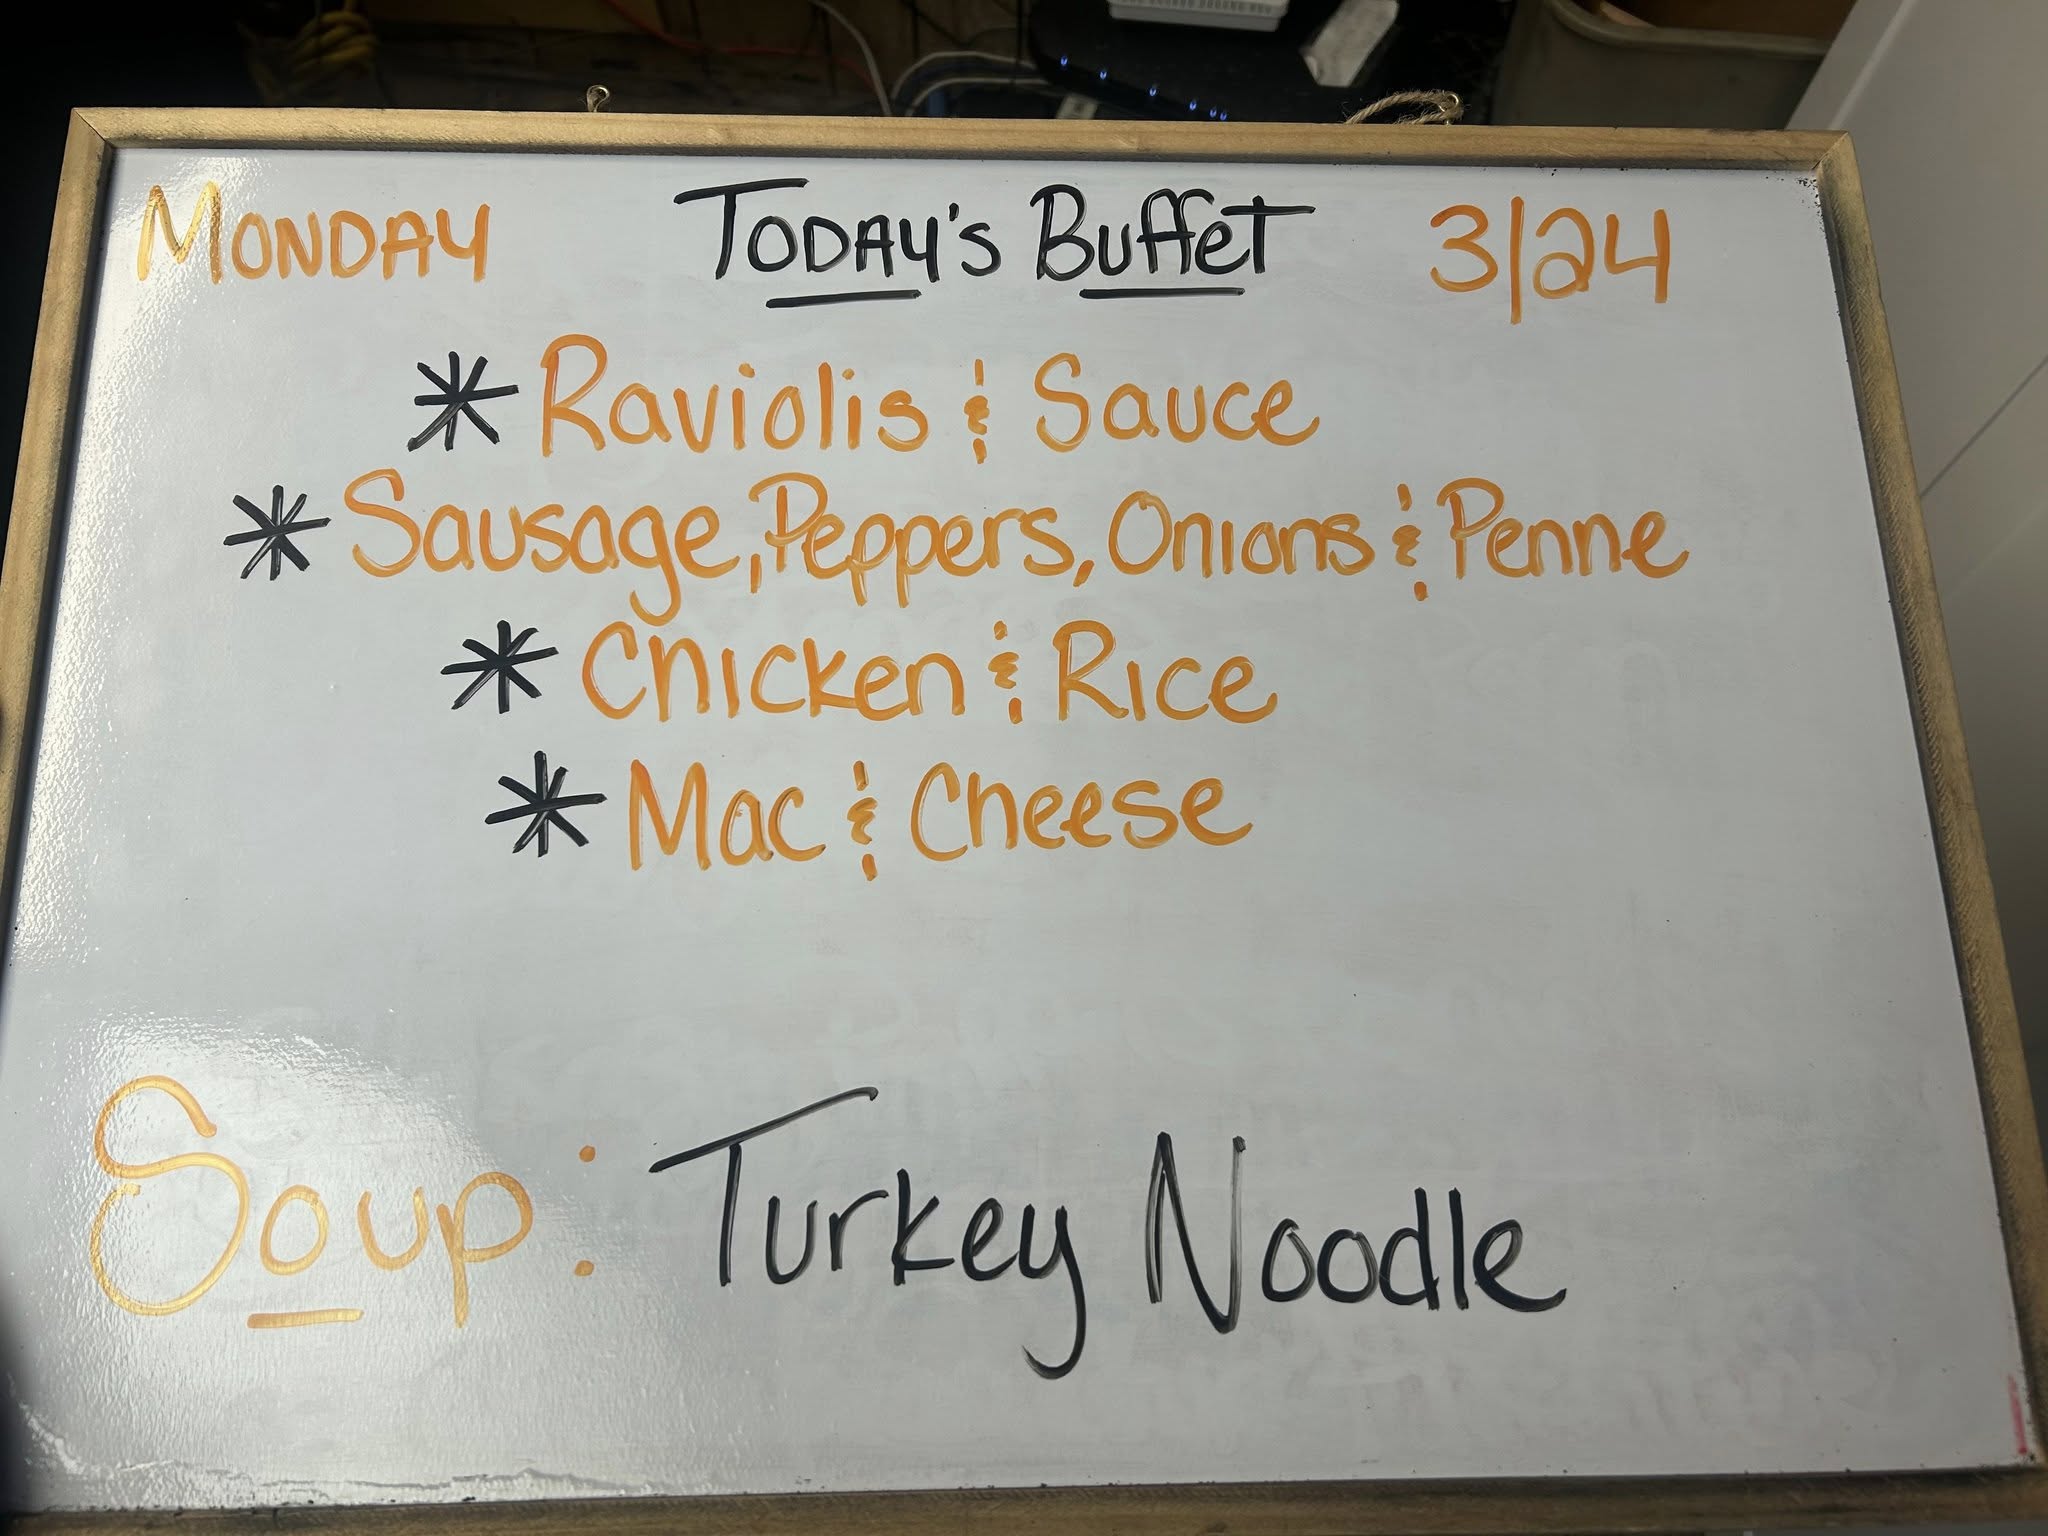 Monday Today's Buffet 3/24
* Raviolis & Sauce
* Sausage, Peppers, Onions & Penne
* Chicken & Rice
* Mac & Cheese
Soup: Turkey Noodle